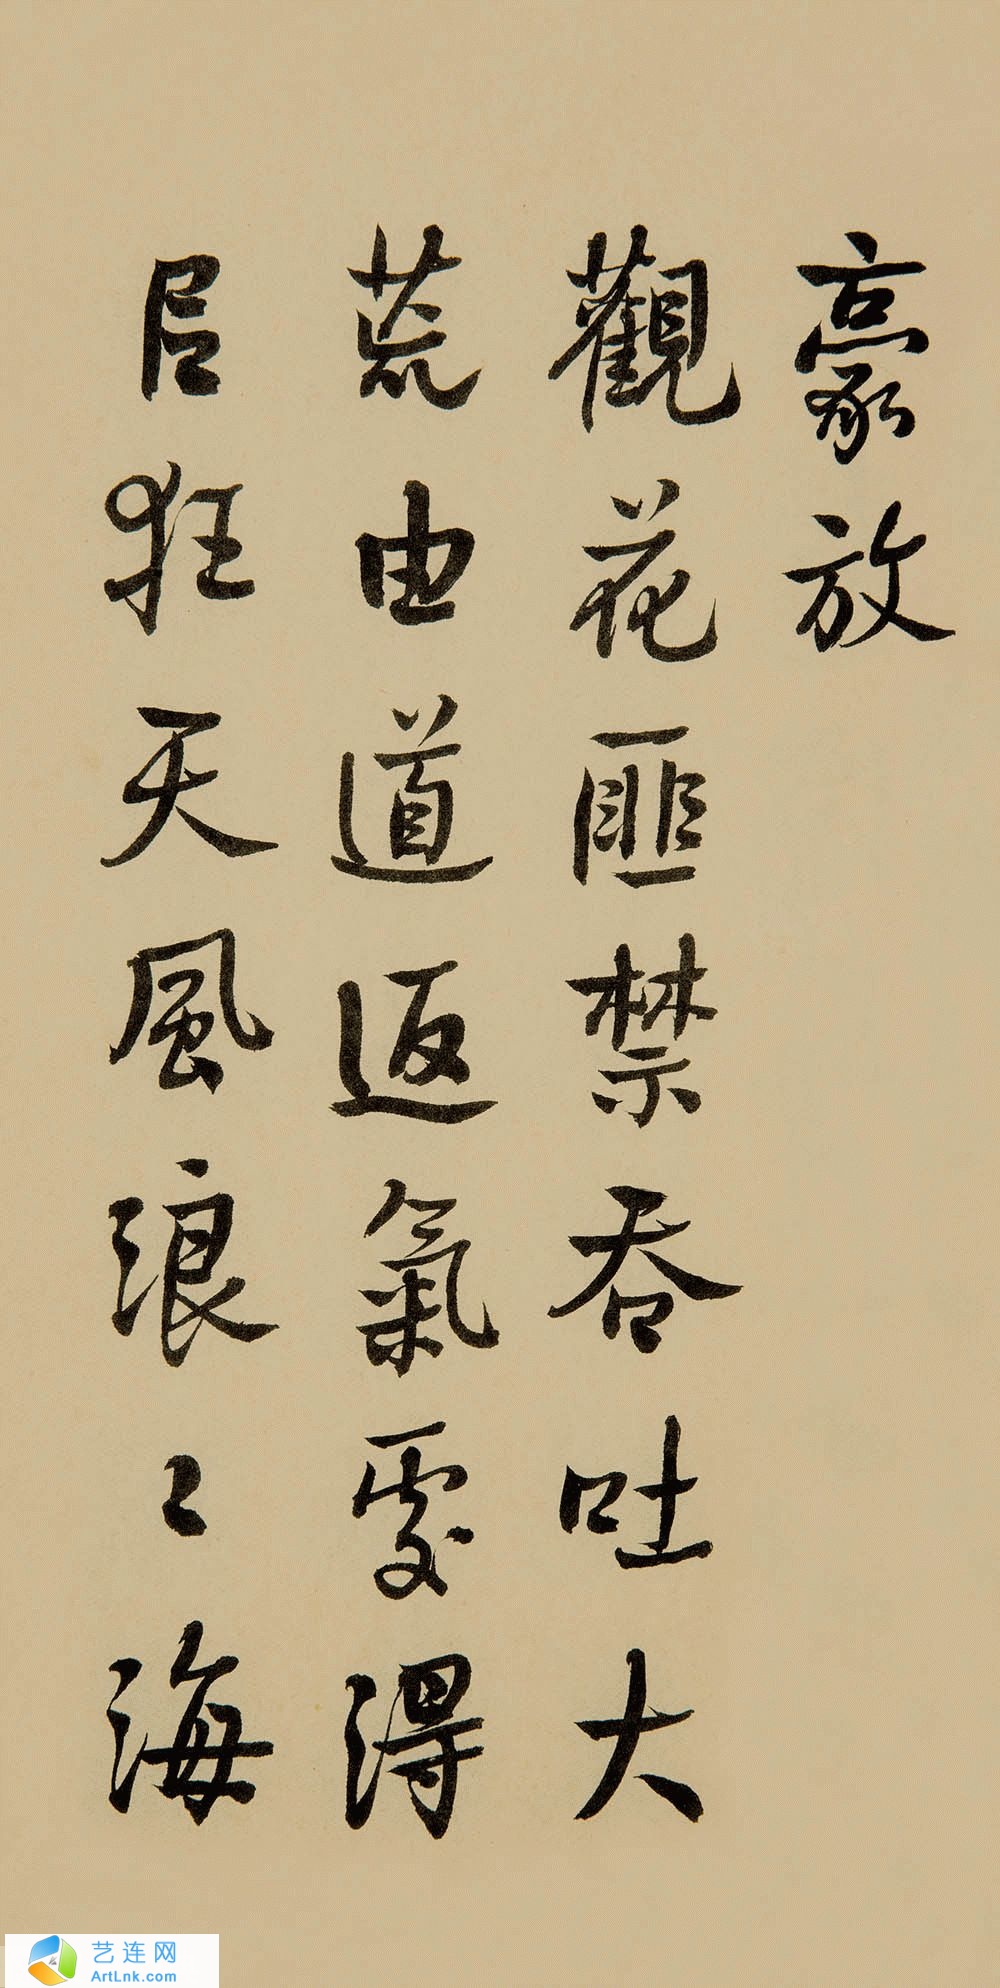 豪放
觀花匪禁吞吐大
荒由道返氣處得
㠯狂天風浪〻海
艺连网
ArtLnk.com